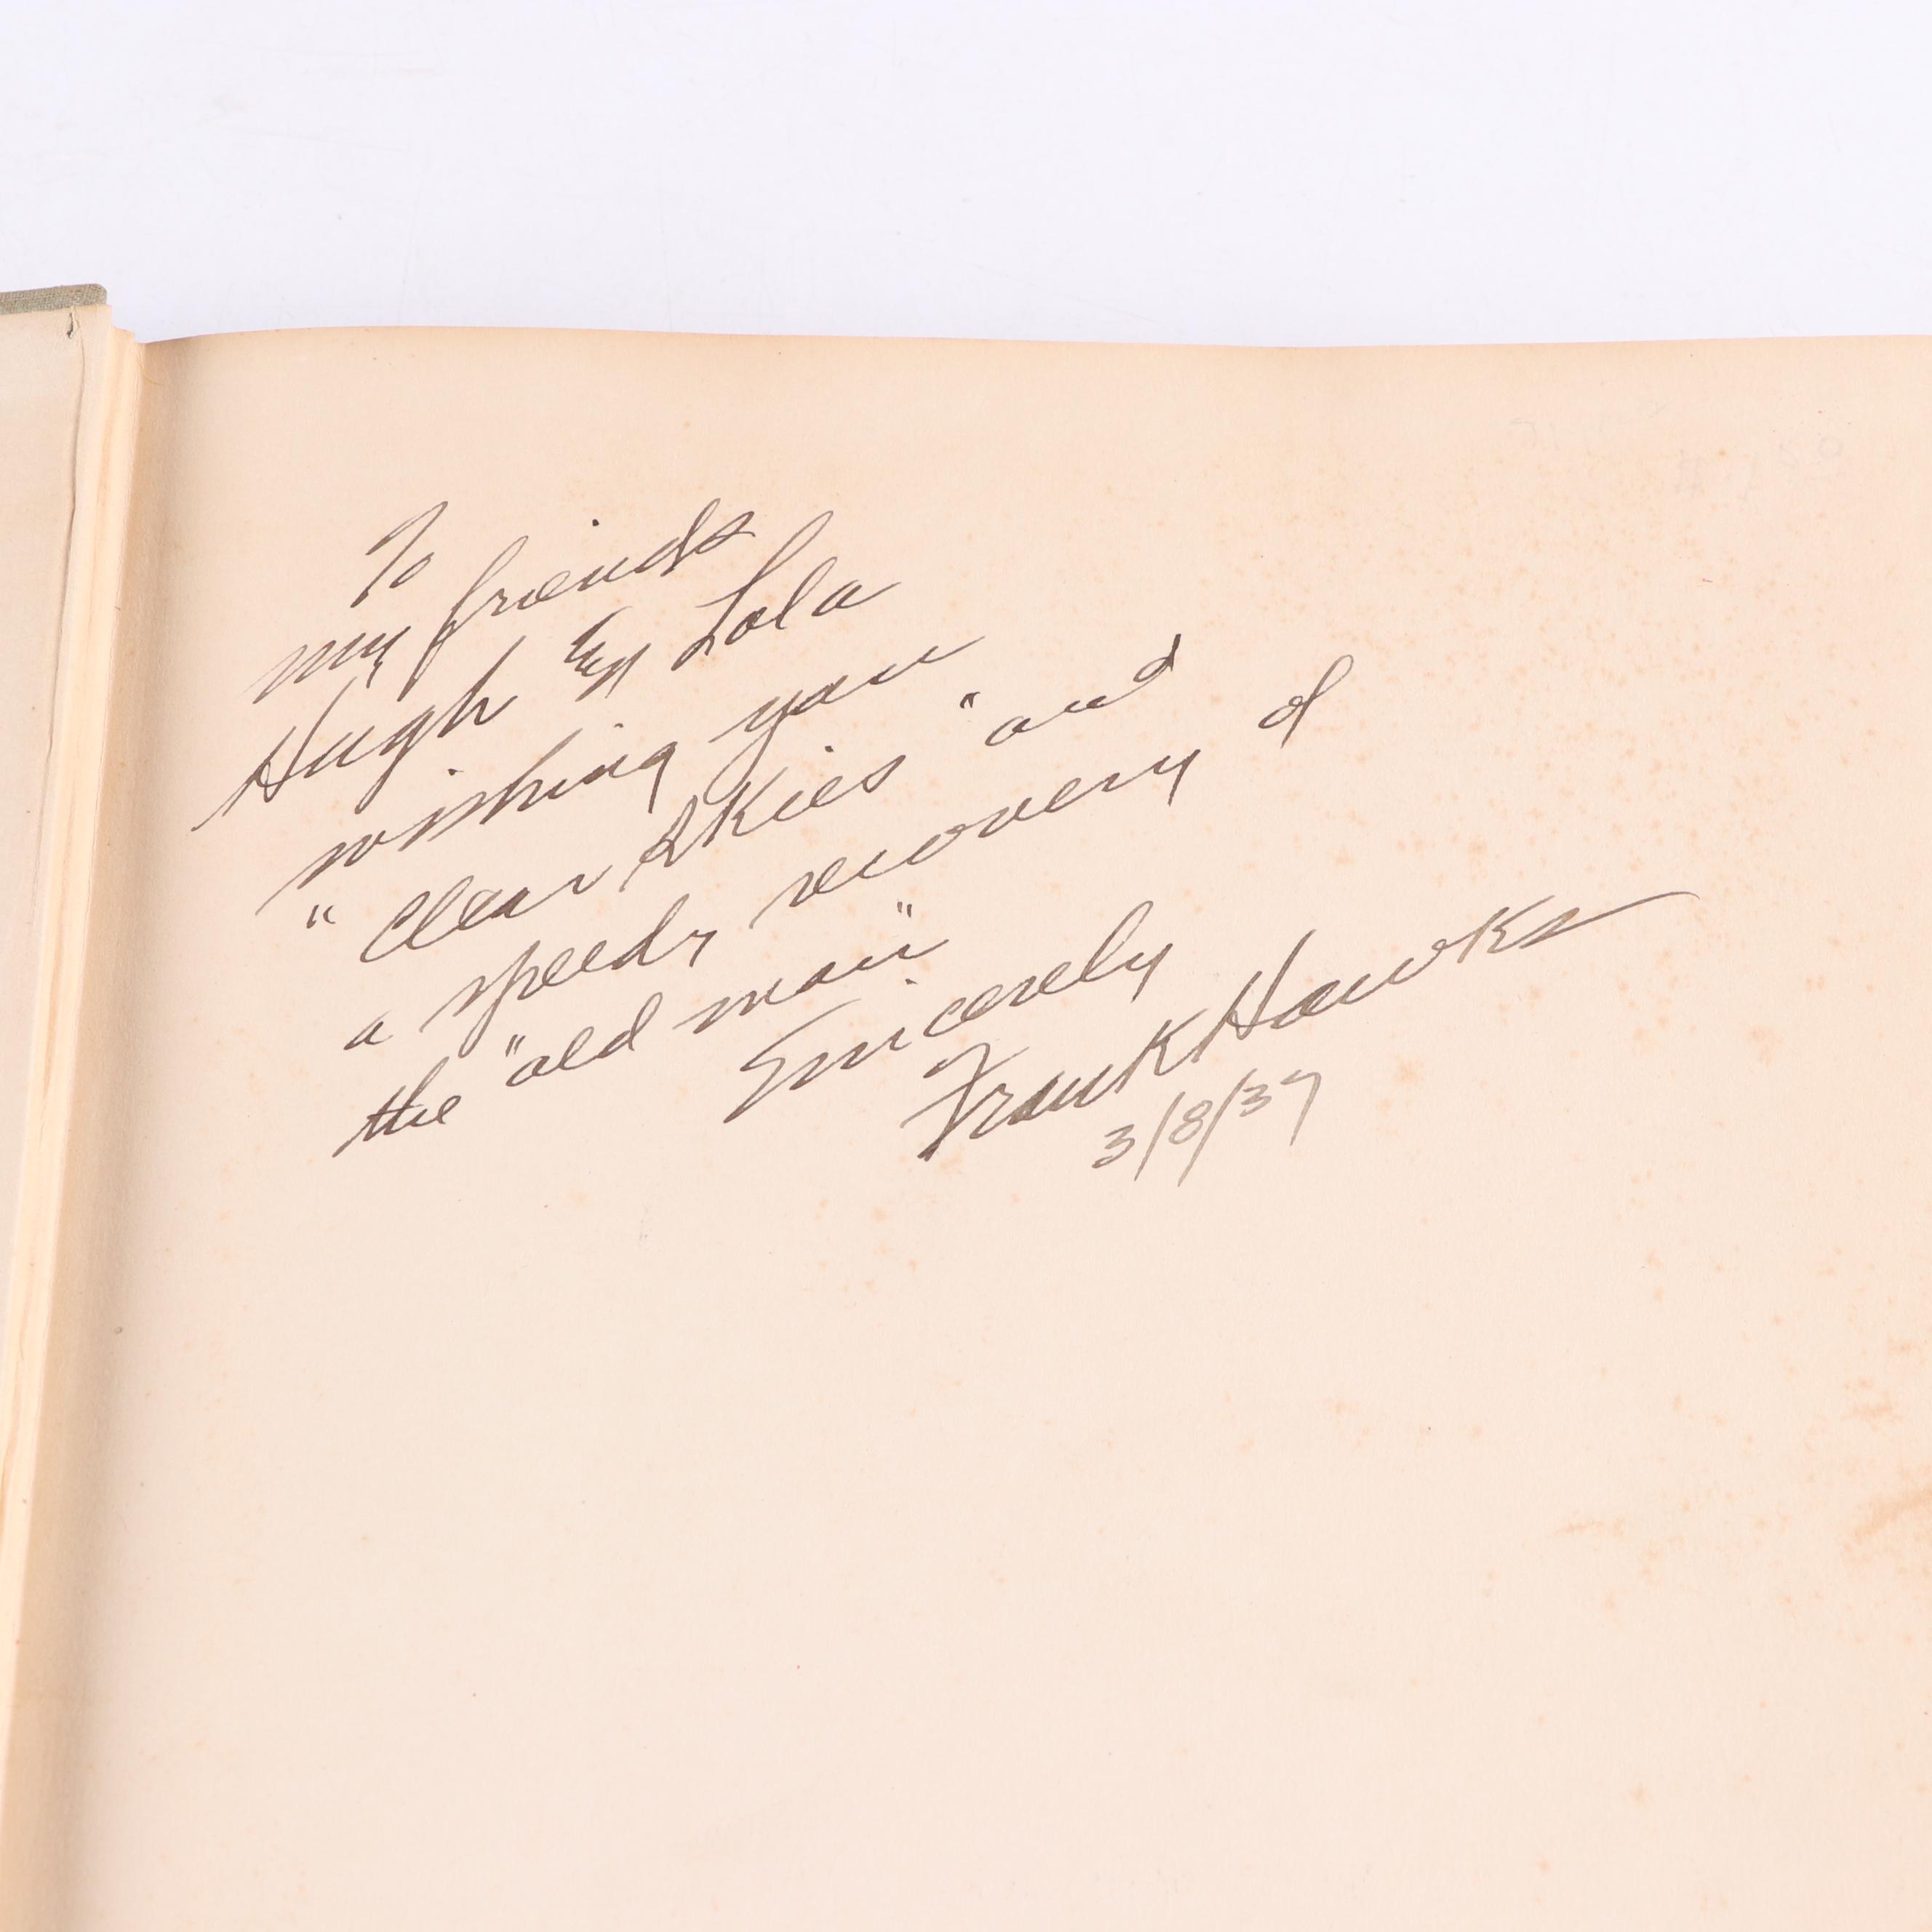 To
my friends
Hugh and Lola
wishing you
"Clear Skies" and
a speedy recovery of
the "old man."
Sincerely
Frank Hawks
3/8/37